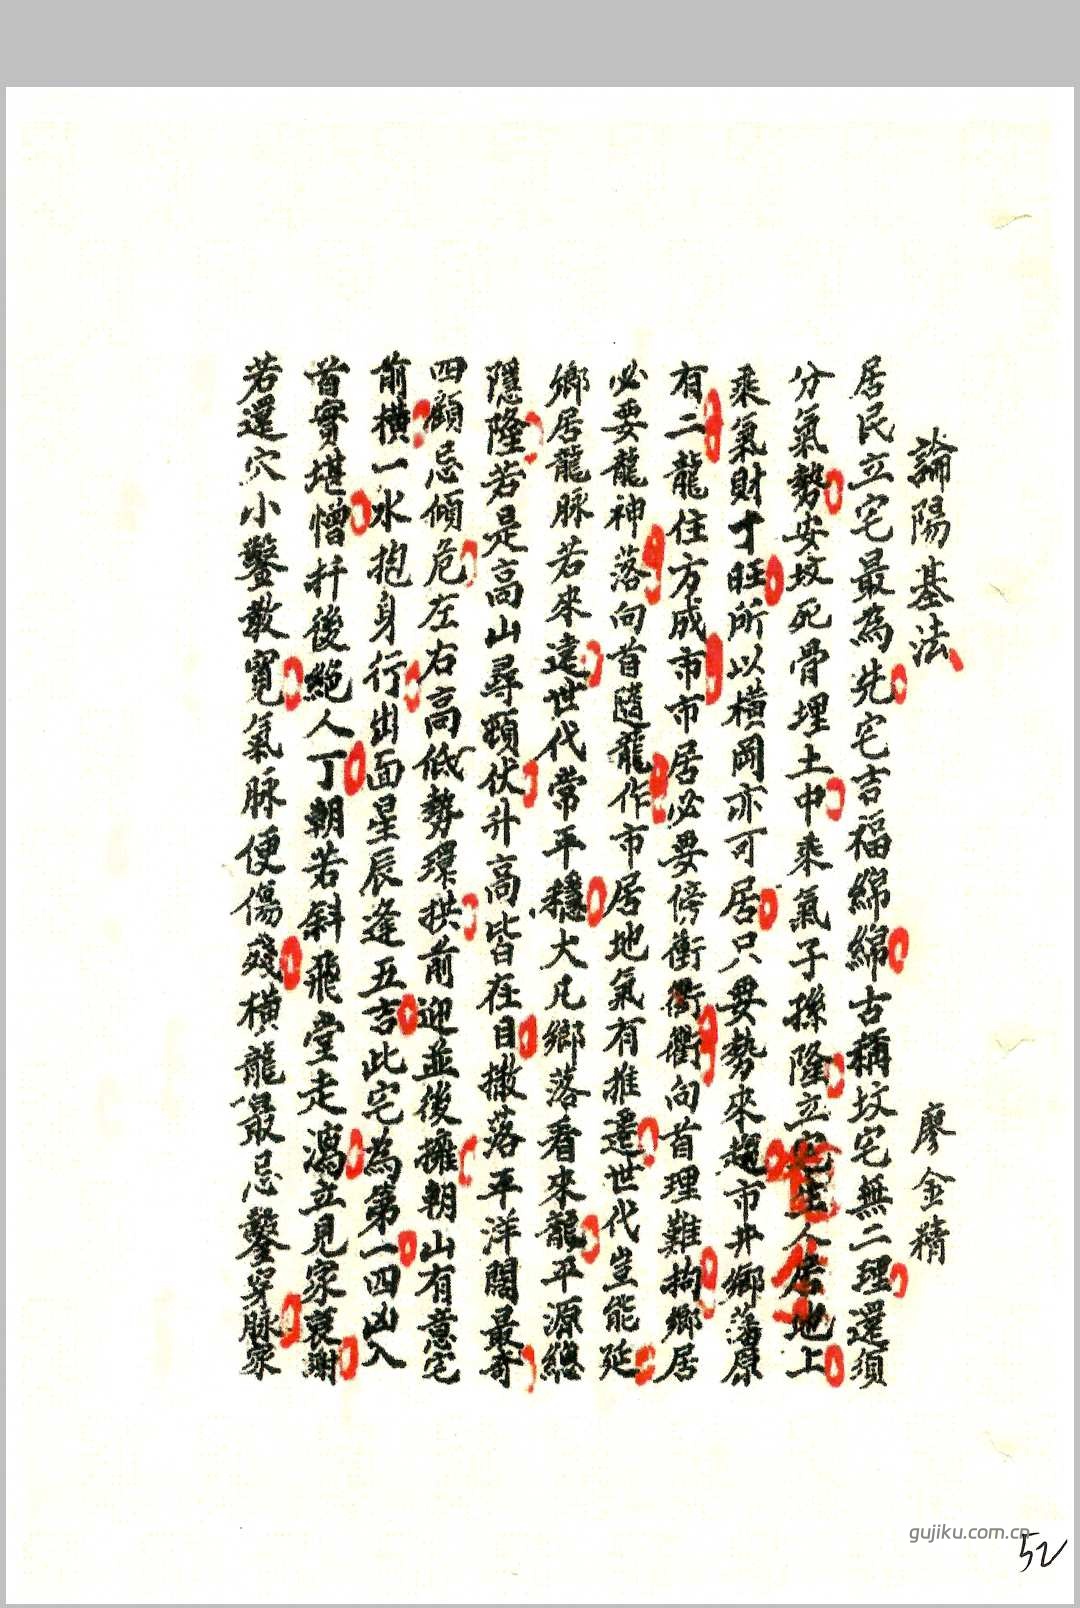 論陽基法 廖金精
居民立宅最為先宅吉福綿綿古稱坟宅無二理還須
分氣勢安坟死骨埋土中乘氣子孫隆立宅生人居地上
乘氣財丁旺所以橫岡亦可居只要勢來趨市井鄉落原
有二龍住方成市市居必要傍衝衢衢向首理難拘鄉居
必要龍神落向首隨龍作市居地氣有推遷世代豈能延
鄉居龍脉若來遠世代常平穩大凡鄉落看來龍平源總
隱隆若是高山尋頓伏升高皆在目撒落平洋闊最奇
四顧忌傾危左右高低勢環拱前迎並後擁朝山有意宅
前橫一水抱身行出面星辰逢五吉此宅為第一四凶入
首實堪憎扦後絕人丁朝若斜飛堂走瀉立見家衰謝
若還穴小鑿教寬氣脉便傷殘橫龍最忌鑿穿脉家
gujiku.com.cn
52